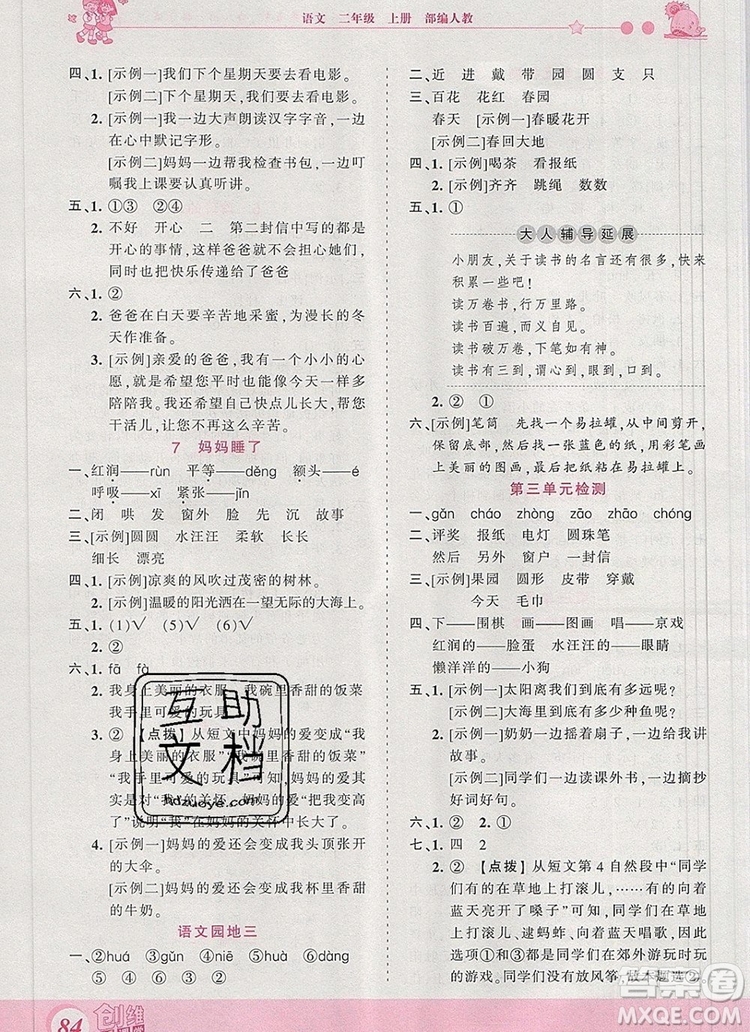 语文 二年级 上册 部编人教
四、1. [示例一]我们下个星期天要去看电影。
[示例二]下个星期天,我们要去看电影。
2. [示例一]我一边大声朗读汉字字音,一边
在心中默记字形。
[示例二]妈妈一边帮我检查书包,一边叮
嘱我上课要认真听讲。
五、1. ①③ ②④
2. 不好 开心 二 第二封信中写的都是
开心的事情,这样爸爸就不会担心她们,
同时也把快乐传递给了爸爸
六、1. ②
2. 爸爸在白天要辛苦地采蜜,为漫长的冬
天作准备。
3. [示例]亲爱的爸爸,我有一个小小的心
愿,就是希望您平时也能像今天一样多
陪陪我。我也希望自己快点儿长大,帮您
干活儿,让您不再这么辛苦。
7 妈妈睡了
一、红润——rùn 平等——děng 额头——é
呼吸——xī 紧张——jǐn
二、闭 哄 发 窗外 脸 先 沉 故事
三、[示例]圆圆 水汪汪 柔软 红红
细长 漂亮
四、1. [示例]凉爽的风吹过茂密的树林。
2. [示例]温暖的阳光洒在一望无际的大海上。
五、1. (1)√ (5)√ (6)√
2. ②
六、1. fā fà
2. 我身上美丽的衣服 我碗里香甜的饭菜
我手里可爱的玩具
3. ② 【点拨】从短文中妈妈的爱变成“我
身上美丽的衣服”“我碗里香甜的饭菜”
“我手里可爱的玩具”“妈妈的爱其实是
妈妈的关怀、妈妈的爱其实是妈妈的微
了”说明“我”在妈妈的关怀中成长。
4. [示例一]妈妈的爱还会变成我头顶上
的大伞。
[示例二]妈妈的爱还会变成我杯里香甜
的牛奶。
语文园地三
一、②huá ③gǔn ④niǎn ①tán
⑤ ② ④ ⑥
84
创维
二、近 进 戴 带 园 圆 支 只
三、百花 花红 春园
春天 [示例一]春暖花开
[示例二]春回大地
四、1. [示例]喝茶 看报纸
2. [示例]齐齐 跳绳 数数
五、1. ①
大人辅导延展
小朋友,关于读书的名言还有很多,快来
积累一些吧!
读万卷书,行万里路。
读书百遍,而义自见。
读书破万卷,下笔如有神。
读书有三到,谓心到,眼到,口到。
2. ② ①
六、[示例]笔筒 先找一个易拉罐,从中间剪开,
保留底部,然后找一张蓝色的纸,在纸上画
上美丽的图画,最后把纸粘在易拉罐上。
第三单元检测
一、gǎn cháo zhòng zāo zhāo chóng
二、评奖 报纸 电灯 圆珠笔
然后 另外 窗户 一封信
三、[示例]果园 圆形 皮带 穿戴
今天 毛巾
四、下——围棋 画——图画 唱——京戏
红润的——脸蛋 水汪汪的——眼睛
懒洋洋的——小狗
五、1. [示例一]太阳离我们到底有多远呢?
[示例二]大海里到底有多少种鱼呢?
2. [示例一]奶奶一边摇着扇子,一边给我讲
故事。
[示例二]同学们一边读课外书,一边摘抄
好词好句。
六、1. ② 2. ①
七、1. 四 2
2. ② 【点拨】从短文第4自然段中“同学
们有的在草地上打滚儿,……有的向着
蓝天亮开了嗓子”可知,同学们在草地
上打滚儿、逮蚂蚱、向着蓝天歌唱。因此
选项①和③都是同学们在郊外游玩时玩
的游戏。没有放风筝,故本题选②。
互助
文档
hdzuoye.com
答案圈
MXQE.COM